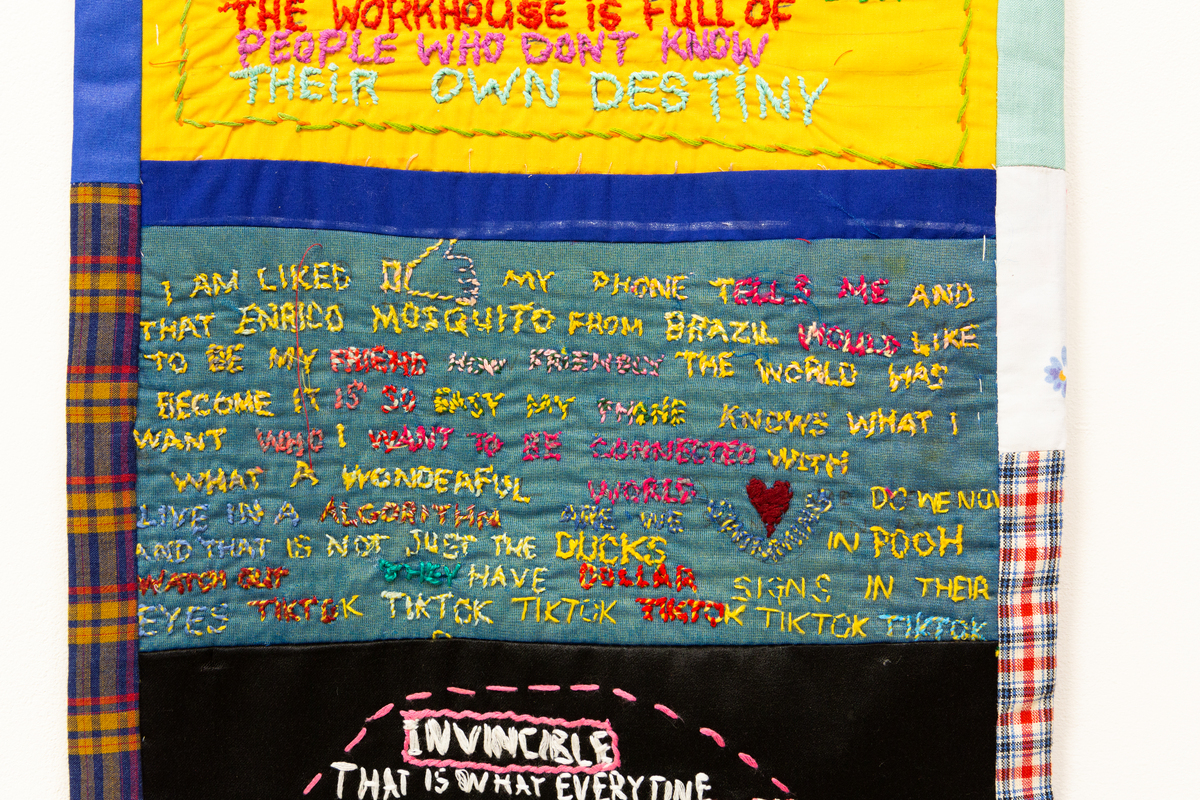 THE WORKHOUSE IS FULL OF
PEOPLE WHO DONT KNOW
THEIR OWN DESTINY
I AM LIKED MY PHONE TELLS ME AND
THAT ENRICO MOSQUITO FROM BRAZIL WOULD LIKE
TO BE MY FRIEND HOW FRIENDLY THE WORLD HAS
BECOME IT IS SO EASY MY PHONE KNOWS WHAT I
WANT WHO I WANT TO BE CONNECTED WITH
WHAT A WONDERFUL WORLD DO WE NOW
LIVE IN A ALGORITHM ARE WE
AND THAT IS NOT JUST THE DUCKS IN POOH
WATCH OUT THEY HAVE DOLLAR SIGNS IN THEIR
EYES TIKTOK TIKTOK TIKTOK TIKTOK TIKTOK TIKTOK
INVINCIBLE
THAT IS WHAT EVERYONE